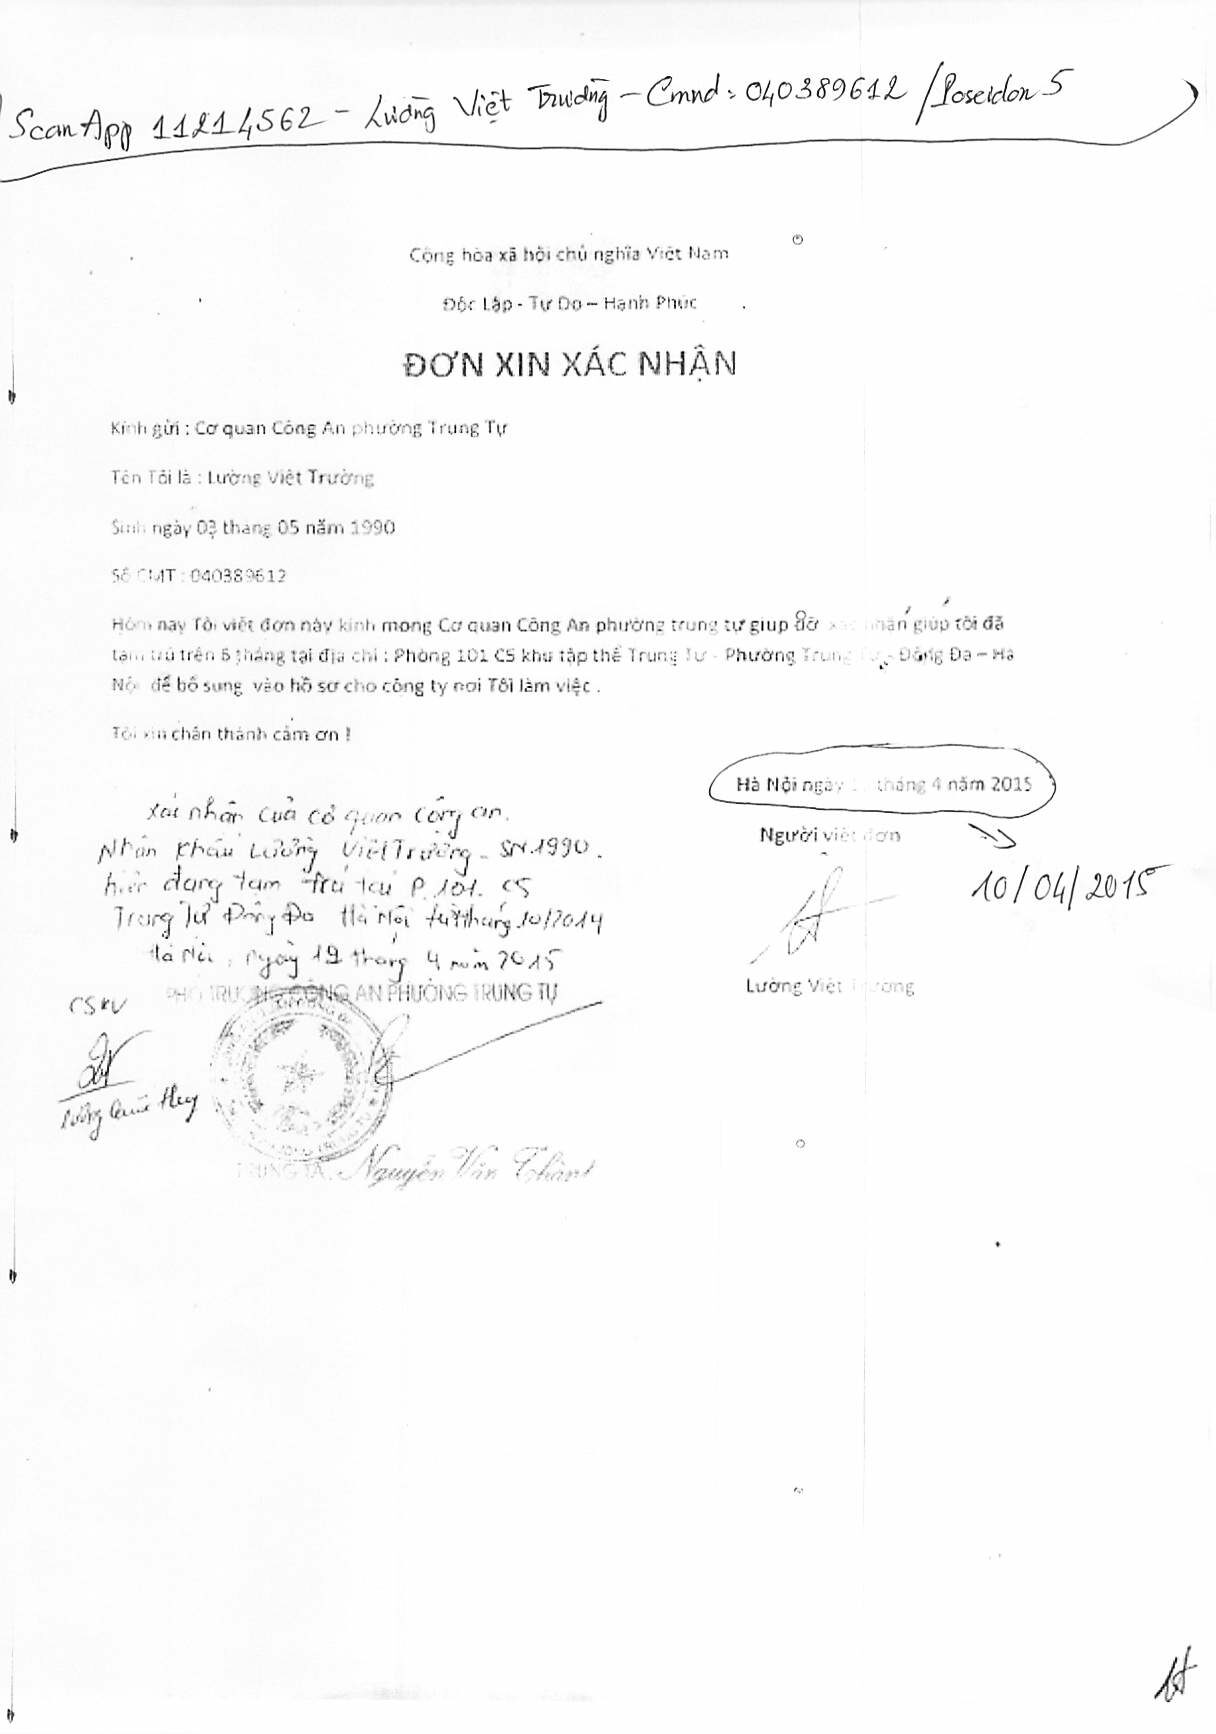 ScanApp 11214562 - Lường Việt Trường - Cmnd: 040389612 /Poseidon 5
Cộng hòa xã hội chủ nghĩa Việt Nam
Độc Lập - Tự Do – Hạnh Phúc
ĐƠN XIN XÁC NHẬN
Kính gửi : Cơ quan Công An phường Trung Tự
Tên Tôi là : Lường Việt Trường
Sinh ngày 03 thang 05 năm 1990
Số CMT : 040389612
Hôm nay Tôi viết đơn này kính mong Cơ quan Công An phường trung tự giup đỡ xác nhấn giúp tôi đã
tạm trú trên 6 tháng tại địa chỉ : Phòng 101 C5 khu tập thể Trung Tự - Phường Trung Tự - Đống Đa – Hà
Nội để bổ sung vào hồ sơ cho công ty nơi Tôi làm việc .
Tôi xin chân thành cảm ơn !
Hà Nội ngày tháng 4 năm 2015
Người viết đơn
10/04/2015
Lường Việt Trường
xác nhận của cơ quan công an.
Nhân khẩu Lường Việt Trường - SN.1990.
hiện đang tạm trú tại P.101. C5
Trung Tự Đống Đa Hà Nội từ tháng 10/2014
Hà Nội, ngày 19 tháng 4 năm 2015
PHÓ TRƯỞNG CÔNG AN PHƯỜNG TRUNG TỰ
CSKV
Huy
TRUNG TÁ. Nguyễn Văn Thành